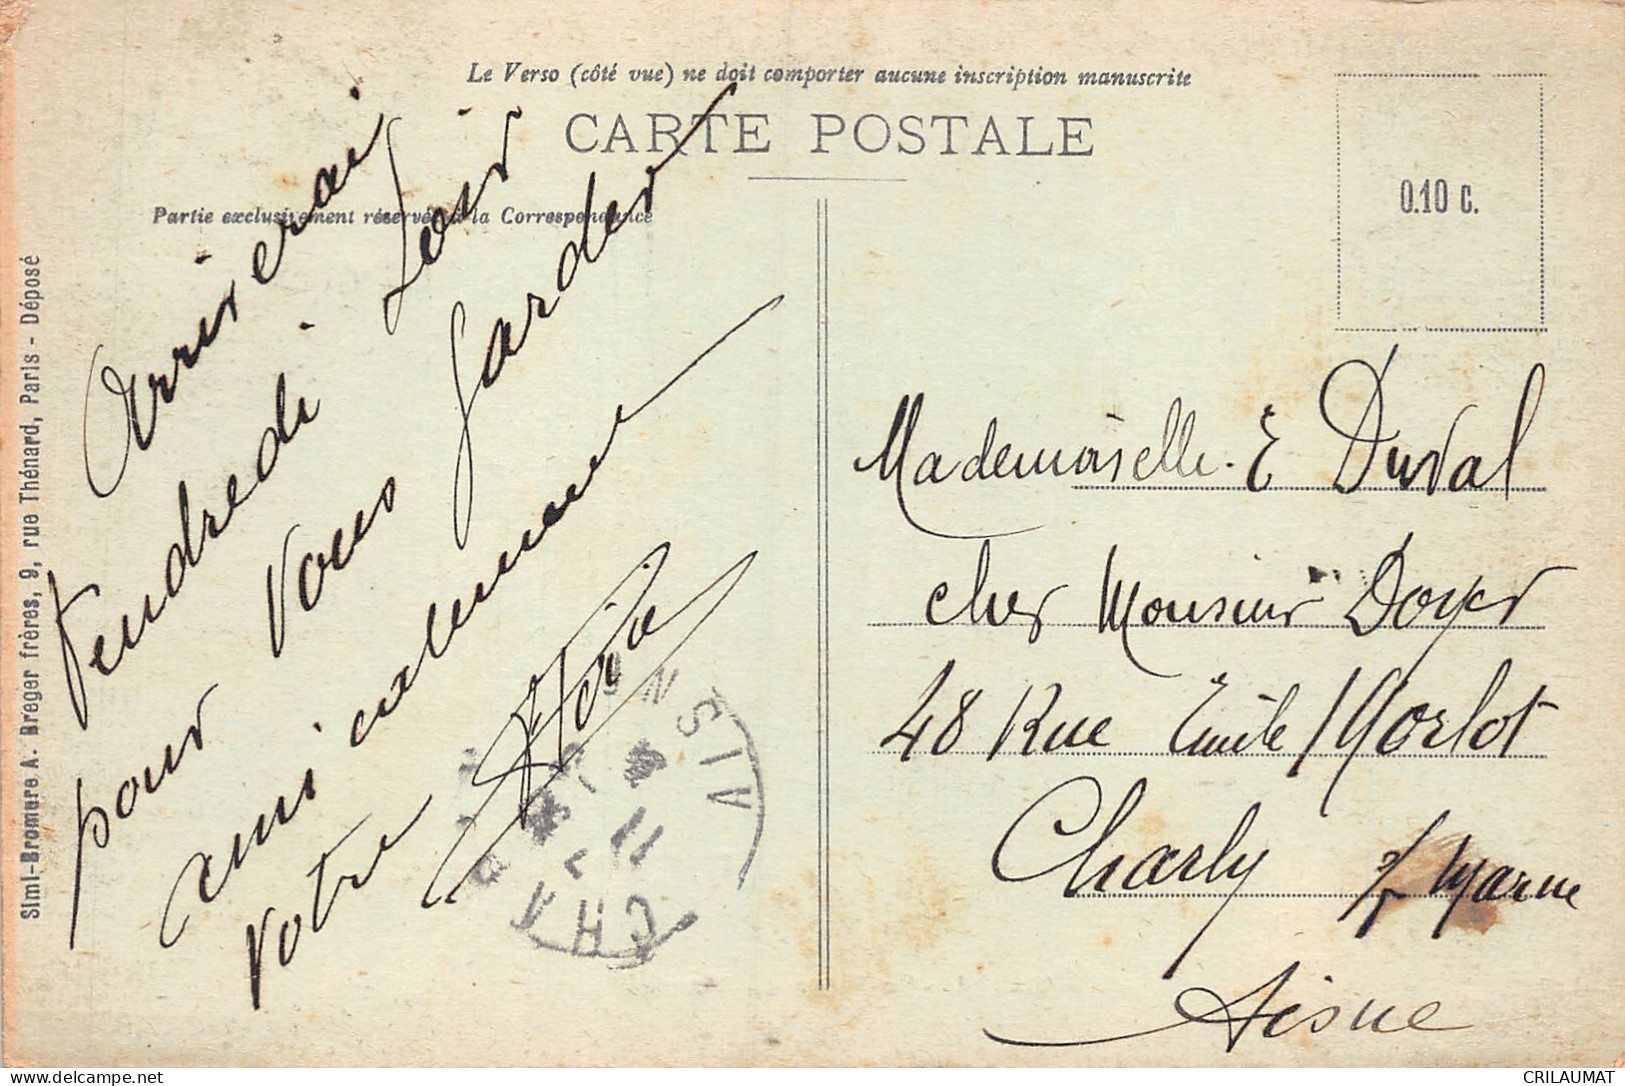 Le Verso (côté vue) ne doit comporter aucune inscription manuscrite
CARTE POSTALE
Partie exclusivement réservée à la Correspondance
0.10 c.
Simi-Bromure A. Breger frères, 9, rue Thénard, Paris - Déposé
Arriverai
Vendredi soir
pour vous garder
amicalement
Votre
Mademoiselle E Duval
cher Monsieur Doyer
48 Rue Emile Morlot
Charly s/ Marne
Aisne
CHA
AISN
11
CRILAUMAT